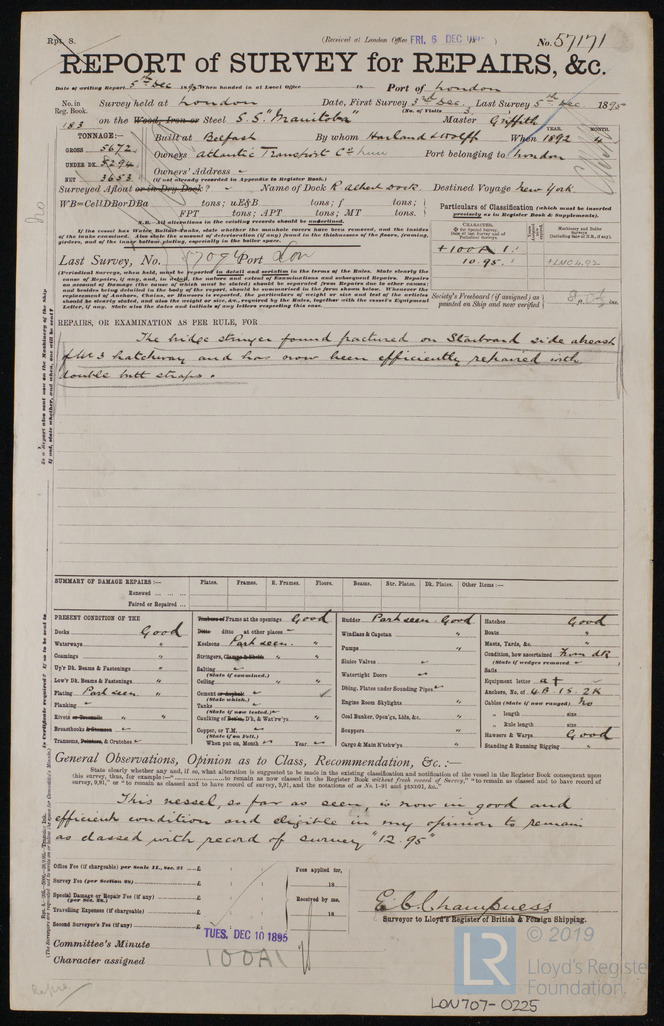 Rpt. 8.
(Received at London Office FRI. 6 DEC 1895)
No. 57171
REPORT of SURVEY for REPAIRS, &c.
Date of writing Report 5th Dec 1895 When handed in at Local Office 18 Port of London
No. in Reg. Book. Survey held at London Date, First Survey 3rd Dec. Last Survey 5th Dec 1895
(No. of Visits 3)
183 on the Wood, Iron or Steel S.S. "Manitoba" Master Griffith
TONNAGE:— Built at Belfast By whom Harland & Wolff When 1892 4
YEAR. MONTH.
GROSS 5672 Owners Atlantic Transport Co Port belonging to London
UNDER DK. 5294 Owners' Address
(If not already recorded in Appendix to Register Book.)
NET 3653
Surveyed Afloat or in Dry Dock? Name of Dock R Albert Dock. Destined Voyage New York
WB=CellDBorDBa tons; uE&B tons; f tons;
FPT tons; APT tons; MT tons.
N.B. All alterations in the existing records should be underlined.
If the vessel has Water Ballast Tanks, state whether the manhole covers have been removed, and the insides of the tanks examined. Also state the amount of deterioration (if any) found in the thicknesses of the floors, framing, girders, and of the inner bottom plating, especially in the boiler space.
Particulars of Classification (which must be inserted precisely as in Register Book & Supplements).
+100A1
10.95.
+LMC 4,92
Last Survey, No. 57094 Port Lon
(Periodical Surveys, when held, must be reported in detail and seriatim in the terms of the Rules. State clearly the cause of Repairs, if any, and, in detail, the nature and extent of Examination and Repairs. Repairs on account of Damage (the cause of which must be stated) should be separated from Repairs due to other causes; and besides being detailed in the body of the report, should be summarised in the form shown below. Whenever the replacement of Anchors, Chains, or Hawsers is reported, the particulars of weight or size and test of the articles should be clearly stated, and also the weight or size, &c., required by the Rules, together with the vessel's Equipment Letter, if any. State also the dates and initials of any letters respecting this case.)
Society's Freeboard (if assigned) as painted on Ship and now verified
REPAIRS, OR EXAMINATION AS PER RULE, FOR
The bridge stringer found fractured on Starboard side abreast
of No 3 hatchway and has now been efficiently repaired with
double butt straps.
SUMMARY OF DAMAGE REPAIRS:— Plates. Frames. R. Frames. Floors. Beams. Str. Plates. Dk. Plates. Other Items:—
Renewed
Faired or Repaired
PRESENT CONDITION OF THE
Decks Good
Waterways "
Coamings "
Up'r Dk. Beams & Fastenings "
Low'r Dk. Beams & Fastenings "
Plating Part seen "
Planking
Rivets or Treenails "
Breasthooks & Stemson
Transoms, Pointers, & Crutches
Timbers or Frame at the openings Good
Ditto ditto at other places
Keelsons Part seen. "
Stringers, Clamps & Shelfs "
Salting
(State if examined.)
Ceiling "
Cement or Asphalt
(State which.)
Tanks
(State if now tested.)
Caulking of Bottm, D'k, & Wat'rw'ys "
Copper, or Y.M.
(State if on Felt.)
When put on, Month Year
Rudder Part seen Good
Windlass & Capstan "
Pumps "
Sluice Valves
Watertight Doors
Dblng. Plates under Sounding Pipes
Engine Room Skylights "
Coal Bunker, Open'gs, Lids, &c. "
Scuppers "
Cargo & Main H'tchw'ys "
Hatches Good
Boats "
Masts, Yards, &c. "
Condition, how ascertained From dk
(State if wedges removed)
Sails
Equipment letter a+
Anchors, No. of 4B. 1S. 2K
Cables (State if now ranged) No
" length size
" Rule length size
Hawsers & Warps Good
Standing & Running Rigging "
General Observations, Opinion as to Class, Recommendation, &c.:—
State clearly whether any, and if so, what alteration is suggested to be made in the existing classification and notification of the vessel in the Register Book consequent upon this survey, thus, for example:—
This vessel, so far as seen, is now in good and
efficient condition and eligible in my opinion to remain
as classed with record of survey "12.95"
Office Fee (if chargeable) per Scale II., Sec. 21 £
Survey Fee (per Section 28) £
Special Damage or Repair Fee (if any) £
(per Sec. 28.)
Travelling Expenses (if chargeable) £
Second Surveyor's Fee (if any) £
Fees applied for,
18
Received by me,
18
E.C. Champness
Surveyor to Lloyd's Register of British & Foreign Shipping.
Committee's Minute TUES. DEC 10 1895
Character assigned 100A1
© 2019
LR
Lloyd's Register
Foundation
LON707-0225